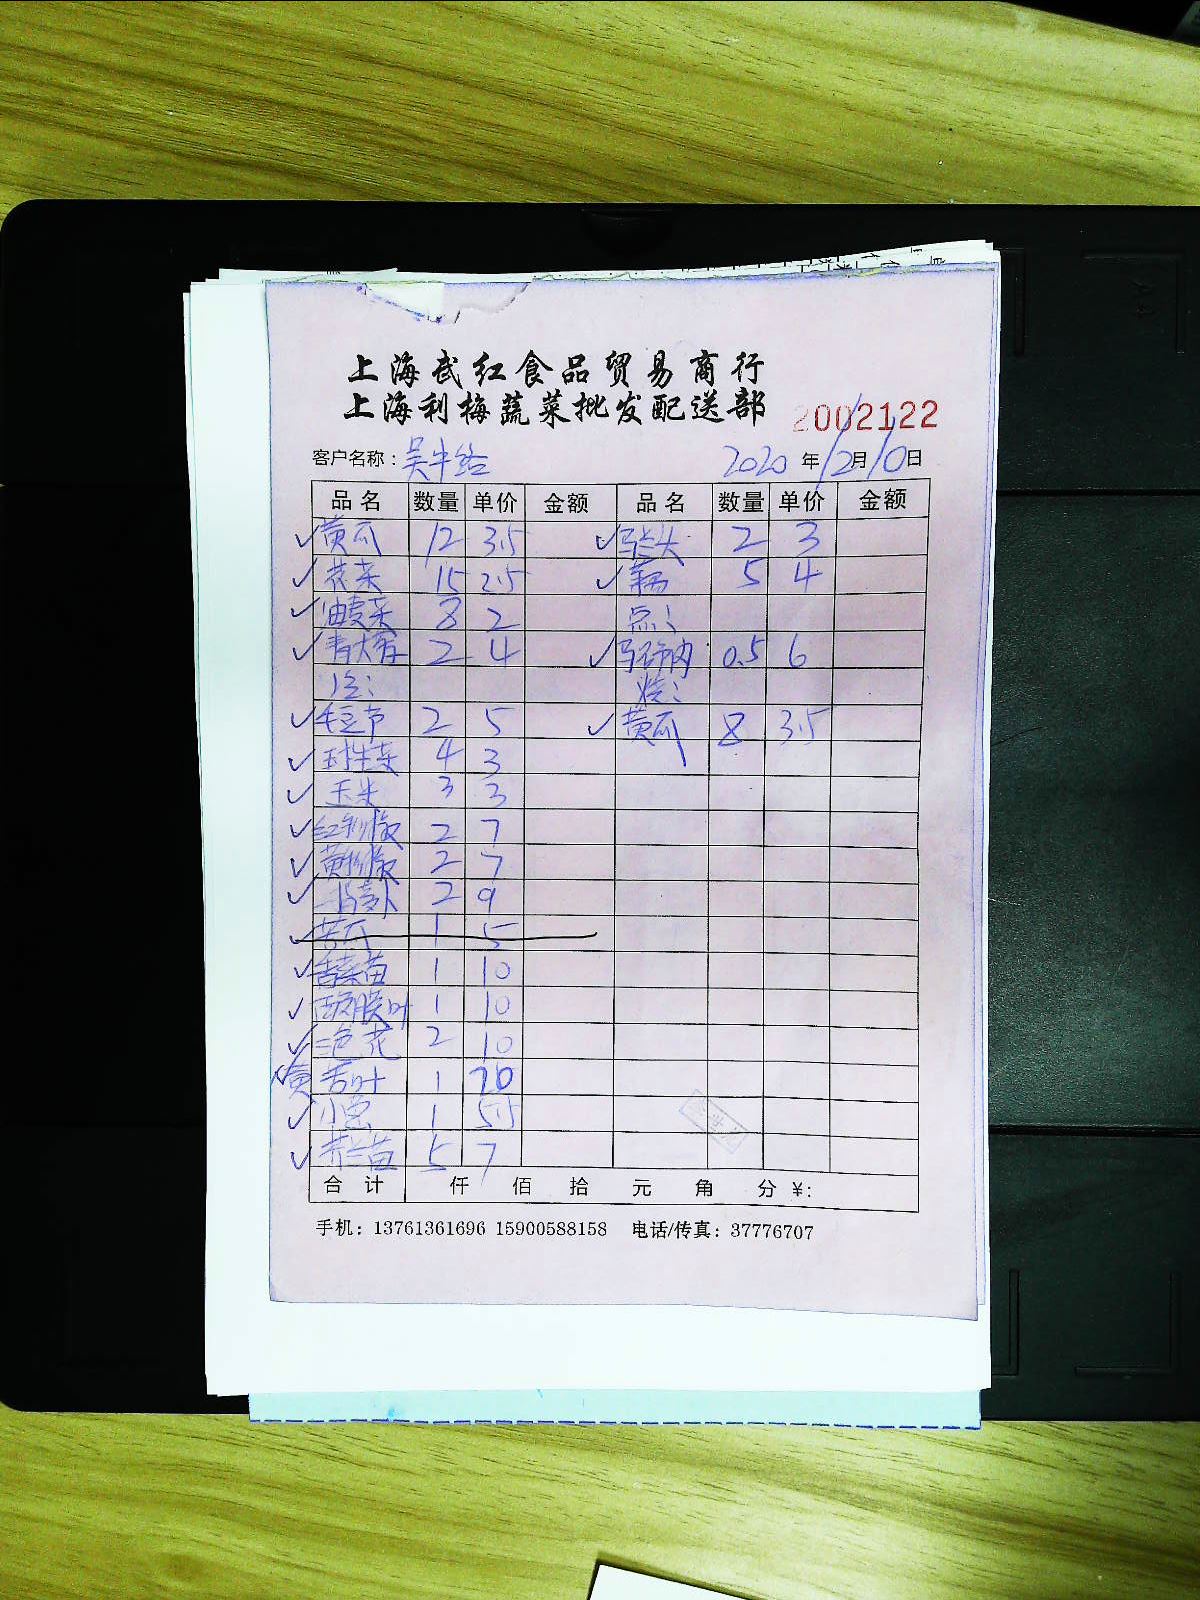 上海武红食品贸易商行
上海利梅蔬菜批发配送部
2002122
客户名称： 2020 年 12 月 10 日
品名 数量 单价 金额 品名 数量 单价 金额
✓黄瓜 12 3.5 ✓马兰头 2 3
✓花菜 15 2.5 ✓ 5 4
✓油麦菜 8 2 点：
✓青大 2 4 ✓ 0.5 6
烧：
✓毛豆节 2 5 ✓黄瓜 8 3.5
✓球生菜 4 3
✓玉米 3 3
✓红 2 7
✓黄 2 7
✓ 2 9
✓苦瓜 1 5
✓香菜苗 1 10
✓ 1 10
✓三色花 2 10
✓黄 1 20
✓小葱 1 5.5
✓芥兰苗 5 7
合计 仟 佰 拾 元 角 分 ¥:
手机：13761361696 15900588158 电话/传真：37776707